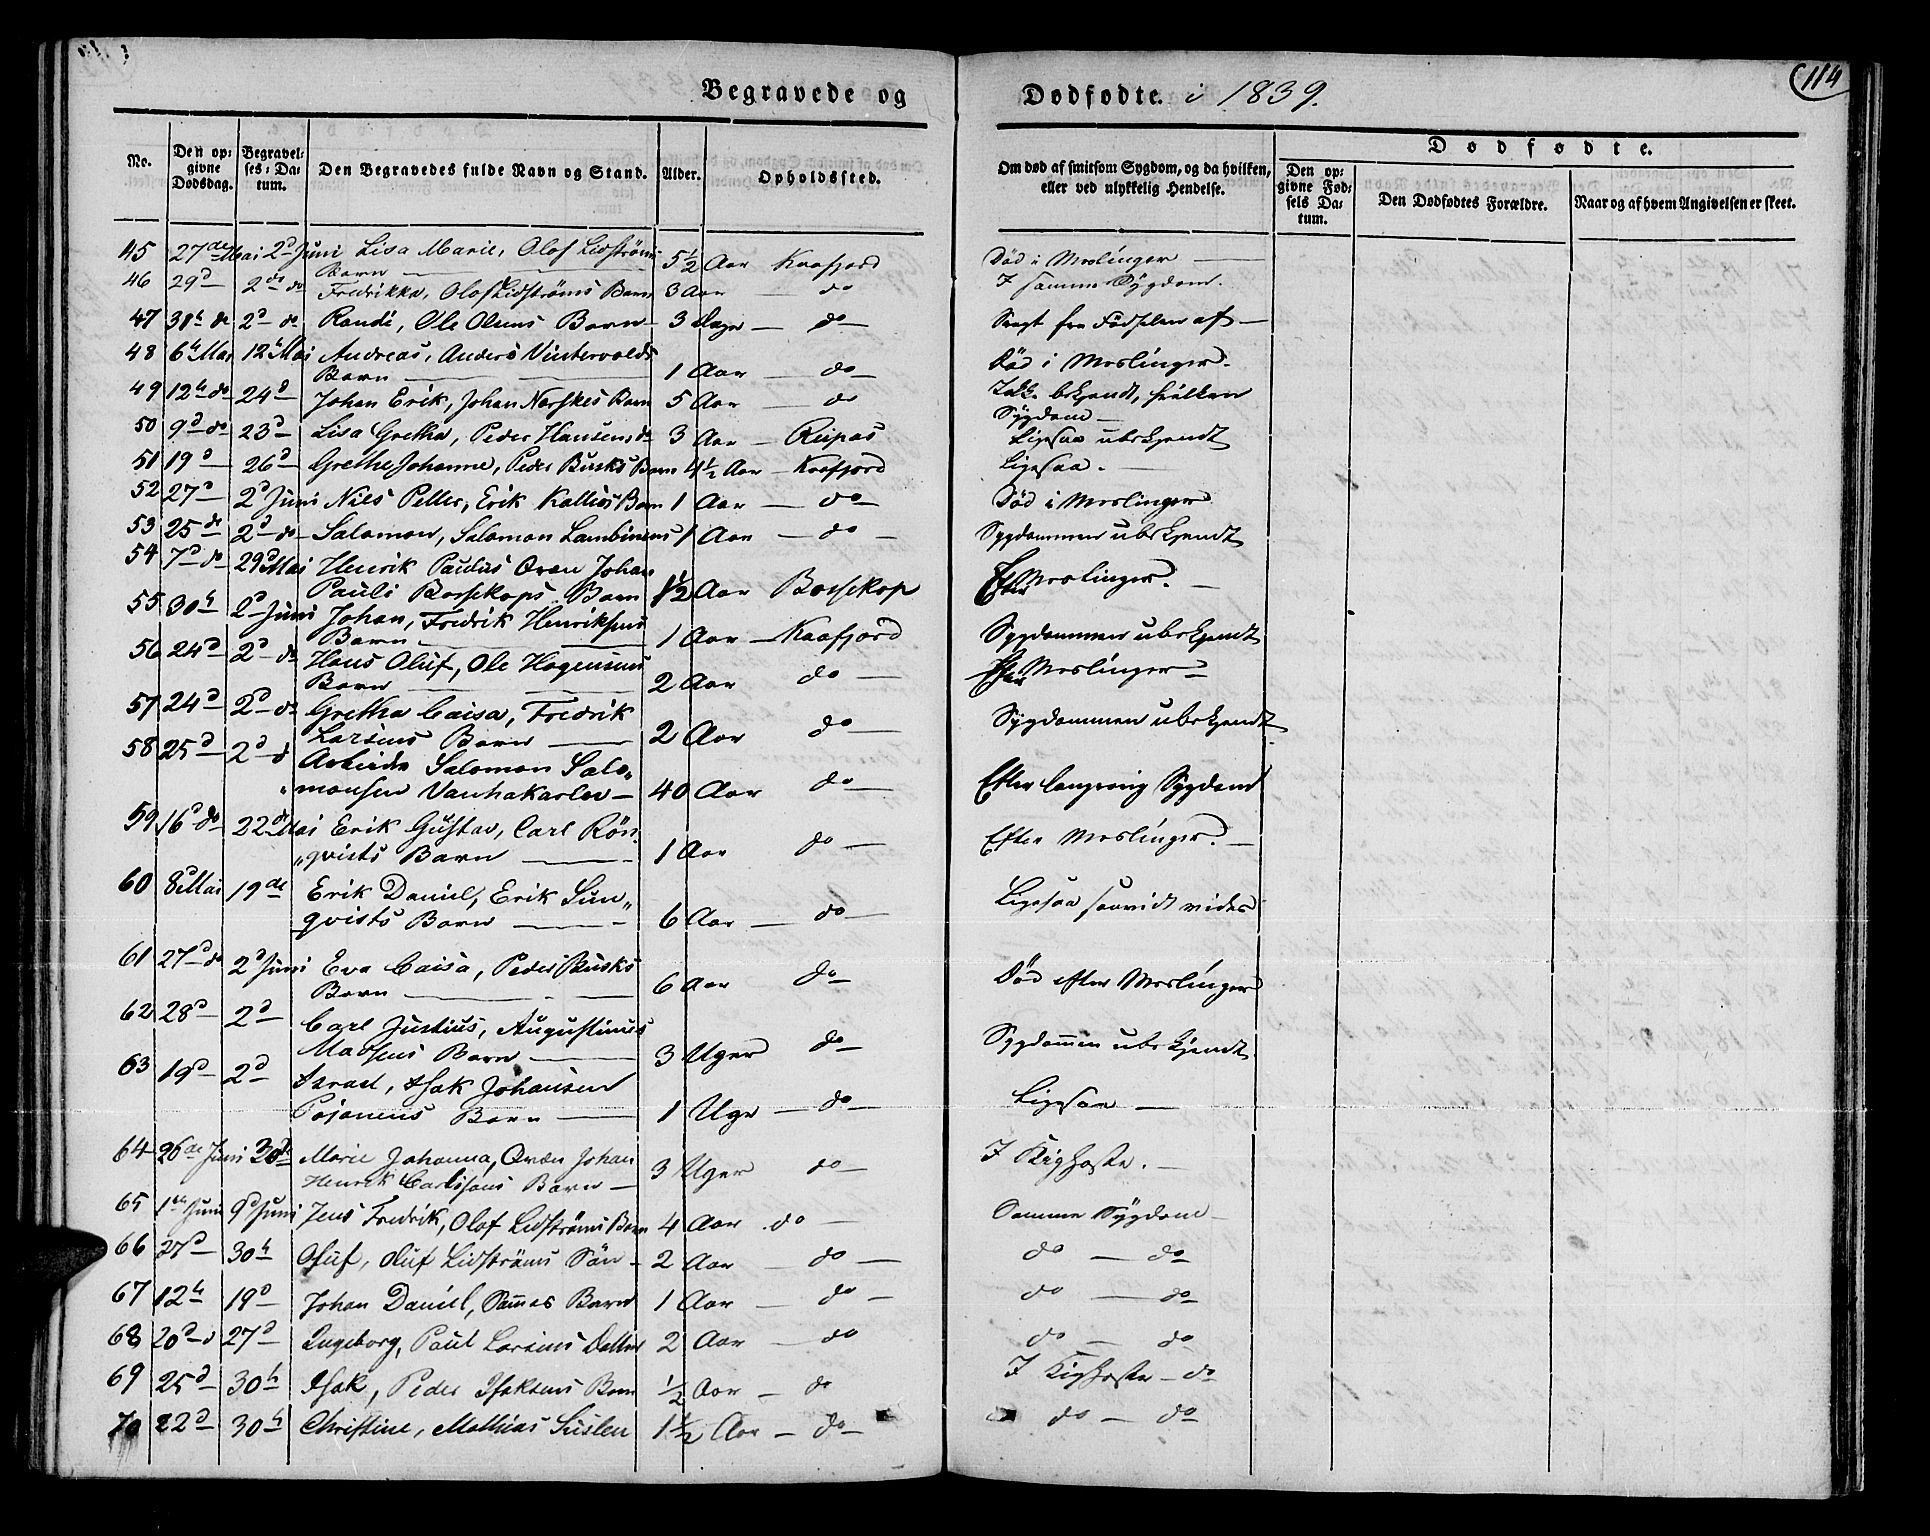 114
Begravede og Dødfødte. i 1839.
No. Den op=givne Dødsdag. Begravel=ses=Da=tum. Den Begravedes fulde Navn og Stand. Alder. Opholdssted. Om død af smitsom Sygdom, og da hvilken, eller ved ulykkelig Hendelse. Dødfødte. Den op=givne Fød=sels Da=tum. Den Dødfødtes Forældre. Naar og af hvem Angivelsen er skeet.
45 27de Mai 2d Juni Lisa Marie, Olof Lidströms Barn 5½ Aar Kaafjord Død i Meslinger
46 29d 2d do Fredrikka, Olof Lidströms Barn 3 Aar do I samme Sygdom.
47 31te do 2d do Randi, Ole Olsens Barn 3 Dage do Svagt fra Fødselen af
48 6te Mai 12te Mai Andreas, Anders Vintervolds Barn 1 Aar do Død i Meslinger.
49 12te do 24d Johan Erik, Johan Norskes Barn 5 Aar do Ikke bekjendt, hvilken Sygdom
50 9d do 23d Lisa Gretha, Peder Hansens do 3 Aar Reipas Ligesaa ubekjendt
51 19d 26d Grethe Johanne, Peder Busks Barn 4½ Aar Kaafjord Ligesaa.
52 27d 2d Juni Nils Petter, Erik Kallios Barn 1 Aar do Død i Meslinger
53 25 de 2d do Salomon, Salomon 1 Aar do Sygdommen ubekjendt
54 7d do 29d Mai Henrik Paulus Qvæn Johan Pauli Bossekops Barn 1½ Aar Bossekop Efter Meslinger.
55 30te 2d Juni Johan, Fredrik Henriksens Barn 1 Aar Kaafjord Sygdommen ubekjendt
56 24d 2d do Hans Oluf, Ole Hagensens Barn 2 Aar do Efter Meslinger
57 24d 2d do Gretha Caisa, Fredrik Larsens Barn 2 Aar do Sygdommen ubekjendt
58 25d 2d d Arbeider Salomon Salo„
„monsen Vanhakarlev 40 Aar do Efter langvarig Sygdom
59 16d do 22de Mai Erik Gustav, Carl Rön„
„qvists Barn 1 Aar do Efter Meslinger.
60 8d Mai 19de Erik Daniel, Erik Sun„
qvists Barn 6 Aar do Ligesaa saavidt vides
61 27d do 2d Juni Eva Caisa, Peder Busks Barn 6 Aar do Død efter Meslinger
62 28d 2d Carl Justius, Augustinus Matsens Barn 3 Uger do Sygdommen ubekjendt
63 19d 2d Israel, Isak Johansen Pojanens Barn 1 Uge do Ligesaa
64 26de Juni 30te Marie Johanna, Qvæn Johan Henrik Carlssons Barn 3 Uger do I Kighoste.
65 1ste Juni 9d Juni Jens Fredrik, Olof Lidströms Barn 4 Aar do Samme Sygdom
66 27d 30te Oluf, Oluf Lidströms Søn 2 Aar do do do
67 12te 19d Johan Daniel, Sammes Barn 1 Aar do do do
68 20d d 27d Ingeborg, Paul Larsens Datter 2 Aar do do do
69 25d 30te Isak, Peder Isaksens Barn ½ Aar do I Kighoste do
70 22d 30te Christine, Mathias Suslen 1½ Aar do do do